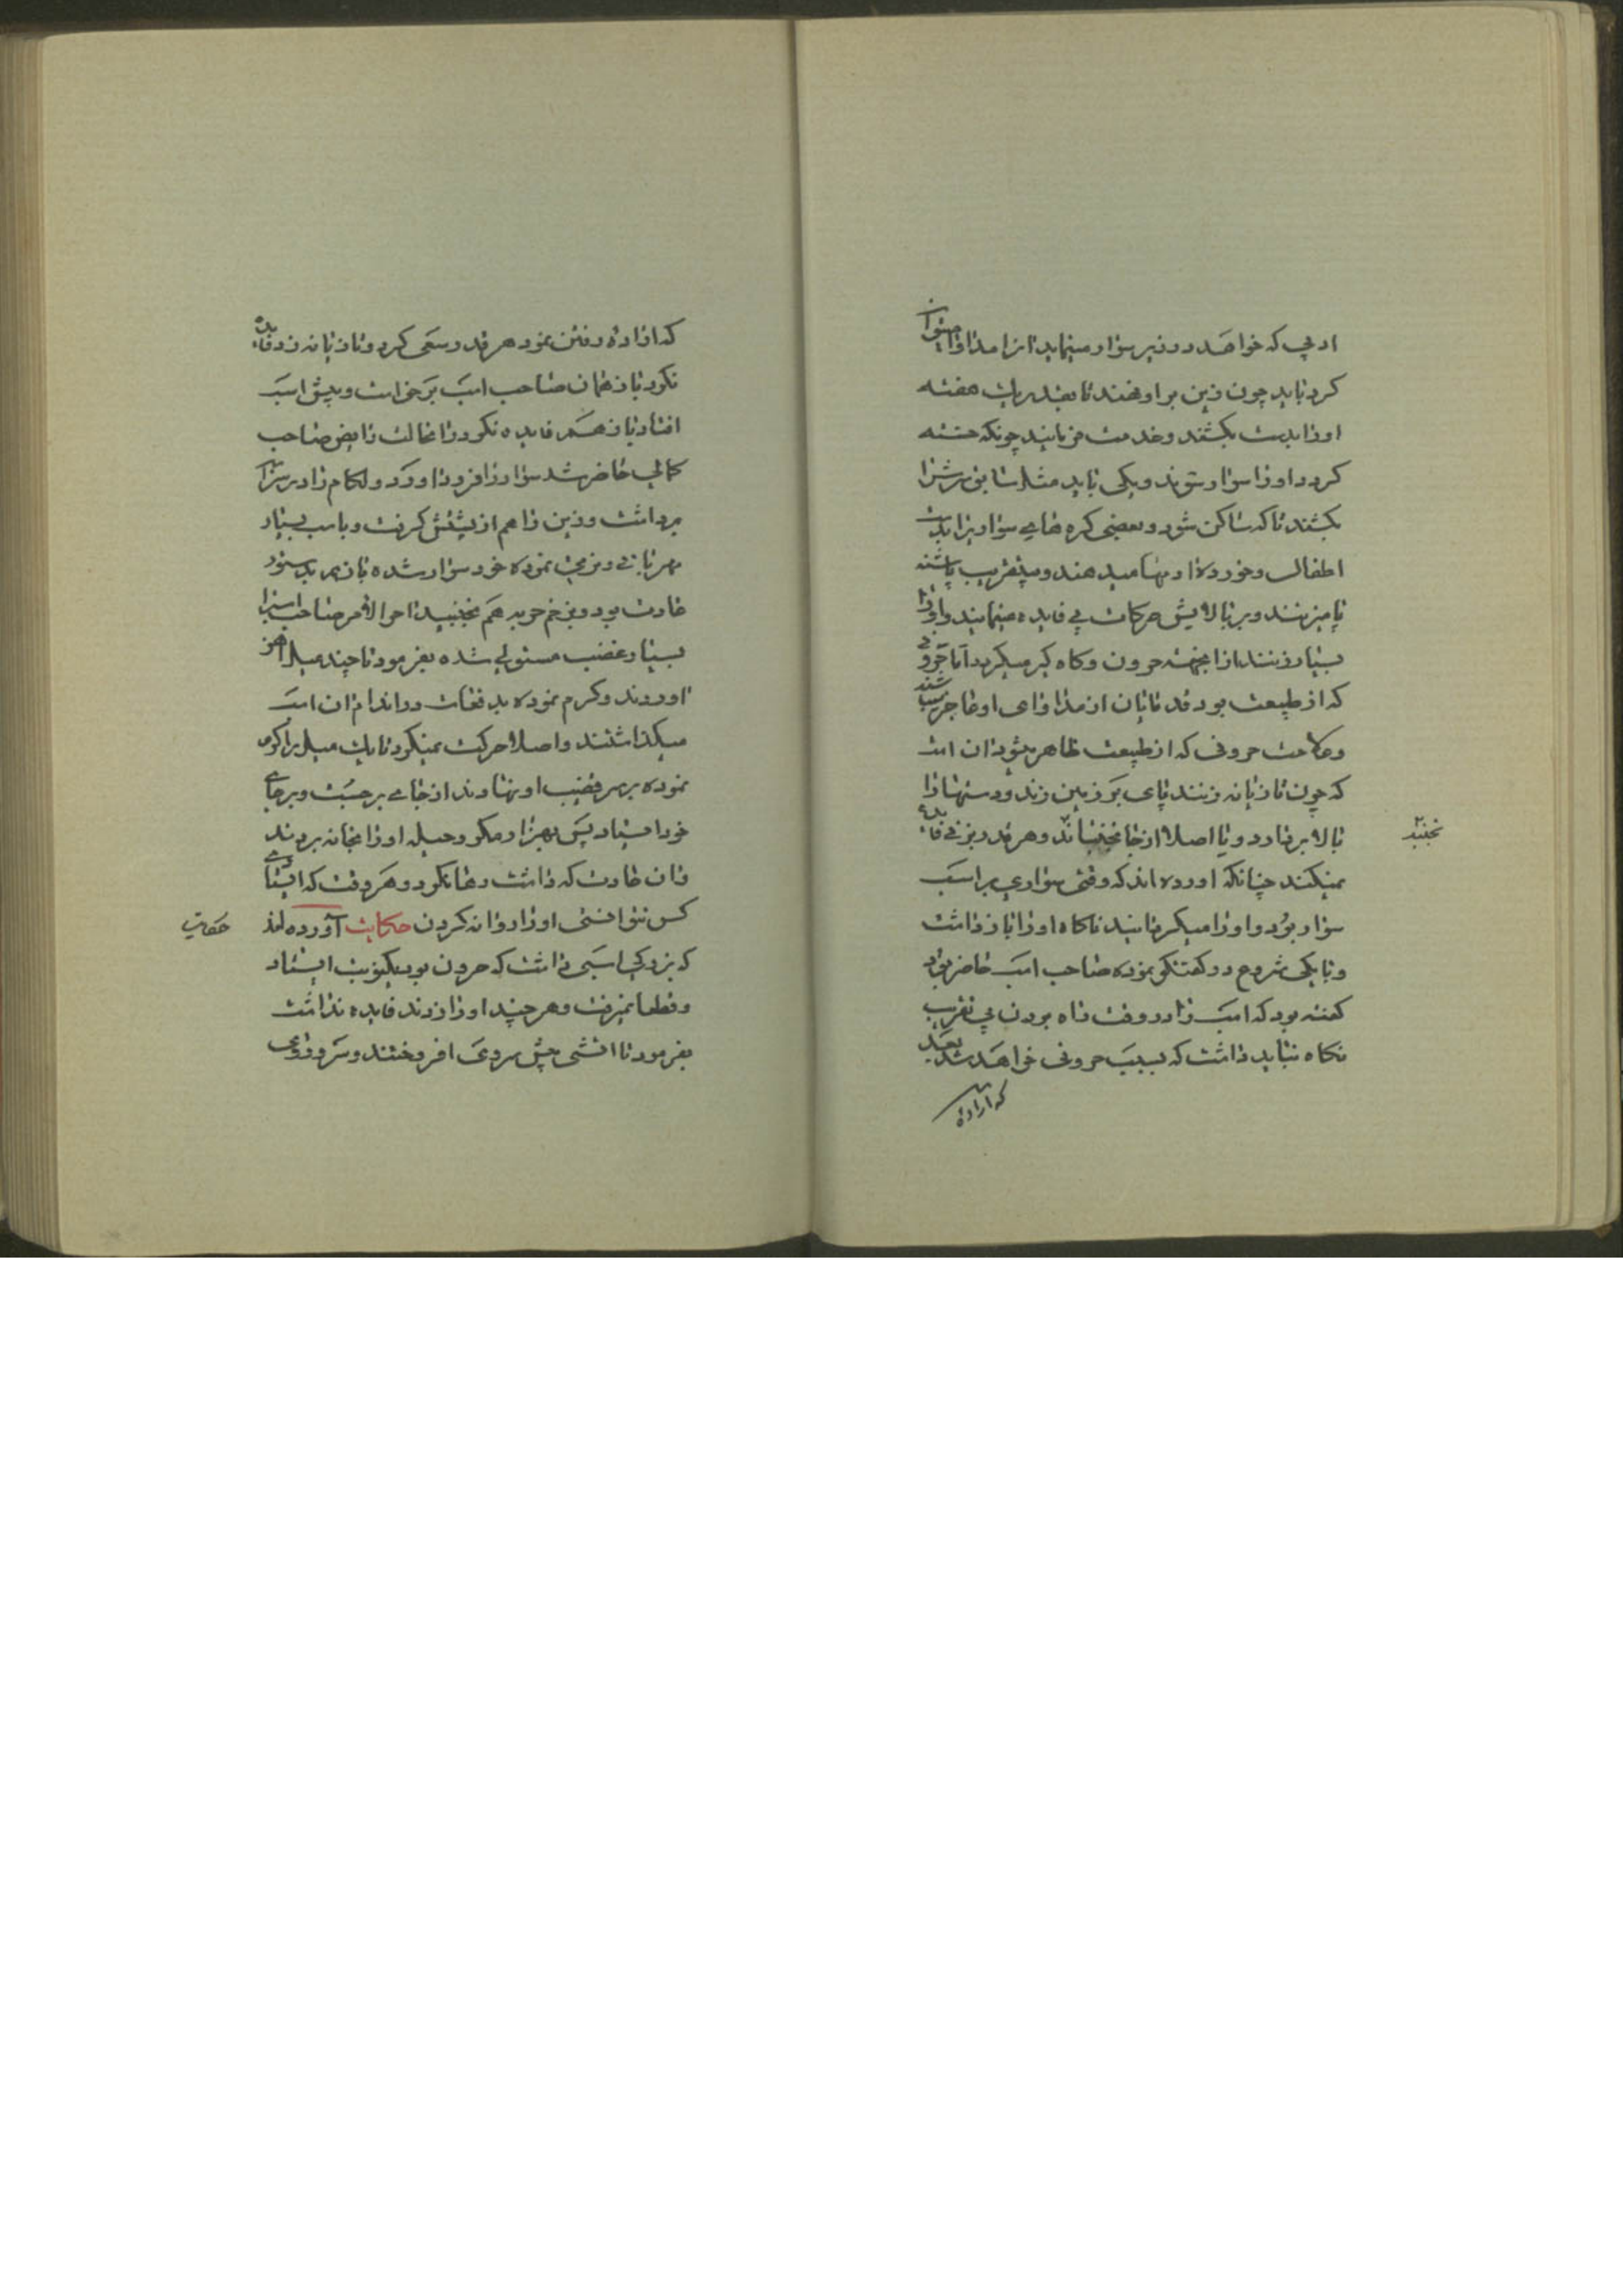 ادبی که خواهد در زیر سوار مینماید انرا مداوا میتوان
کرد باید چون زین بر او نهند تا بقدر یک هفته
او را بدست بکشند و خدمت فرمایند چونکه خسته
کردد او را سوار شوند و یکی باید مثل سابق سرش را
بکشند تا که ساکن شود و بعضی کره های سواریرا بدست
اطفال و خورد و ریها میدهند و بیتقریب پاشنه
پا میزنند و بر بالایش حرکات بی فایده مینمایند و او را
بسیار زنند از اینجهت حرون و کاه کیر میکردد اما حرونی
که از طبیعت بود قدماییان از مداوای او عاجز میباشند
و علامت حرونی که از طبیعت ظاهر میشود ان است
که چون تازیانه زنند پای بر زمین زند و دستها را
بالا بر ندارد و یا اصلا از جا نجنباند و هر قدر بزنی فایده
نمیکند چنانکه اورده اند که وقتی سواری بر اسب
سوار بود و او را میکردانید ناکاه او را باز داشت
و با یکی شروع در کفتنکو نموده صاحب اسب حاضر بود
کفته بود که اسب را در وقت راه بردن بی تقریب
نکاه نباید داشت که بسبب حرونی خواهد شد بعد
که اراده
نجنبد
که اراده رفتن نمود هر قدر سعی کرد و تازیانه زد فایده
نکرد باز همان صاحب اسب برخواست و پیش اسب
افتاد باز هم فایده نکرد در انحالت رایض صاحب
کمالی حاضر شد سوار را فرود اورد و لکام را از سرش
برداشت و زین را هم از پشتش کرفت و با اسب بسیار
مهربانی و نرمی نموده خود سوار شده باز هم بدستور
عادت بود و بزخم چوب هم نجنبید اخر الامر صاحب اسبرا
بسیار غضب مستولی شده بفرمود تا چند میل اهن
اوردند و کرم نموده بدفعات در اندام ان اسب
میکذاشتند و اصلا حرکت نمیکرد تا یک میل را کرم
نموده بر سر قضیب او نهادند از جای برجست و بر جای
خود ایستاد پس بهزار مکر و حیله او را بخانه بردند
و ان عادت که داشت رها نکرد و هر وقت که ایستادی
کس نتوانستی او را روانه کردن حکایت آورده اند
که بزرکی اسبی داشت که حرون بود یکنوبت ایستاد
و قطعا نمیرفت و هر چند او را زدند فایده نداشت
بفرمود تا اتشی پیش روی افروختند و سر و روی
حکایت